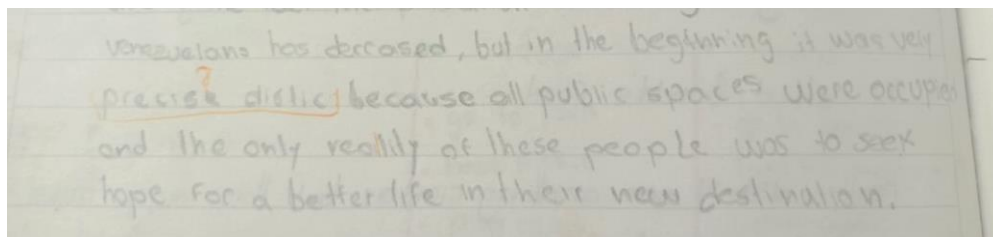 venezuelans has decreased, but in the beginning it was very
?
precise dislic, because all public spaces were occupied
and the only reality of these people was to seek
hope for a better life in their new destination.